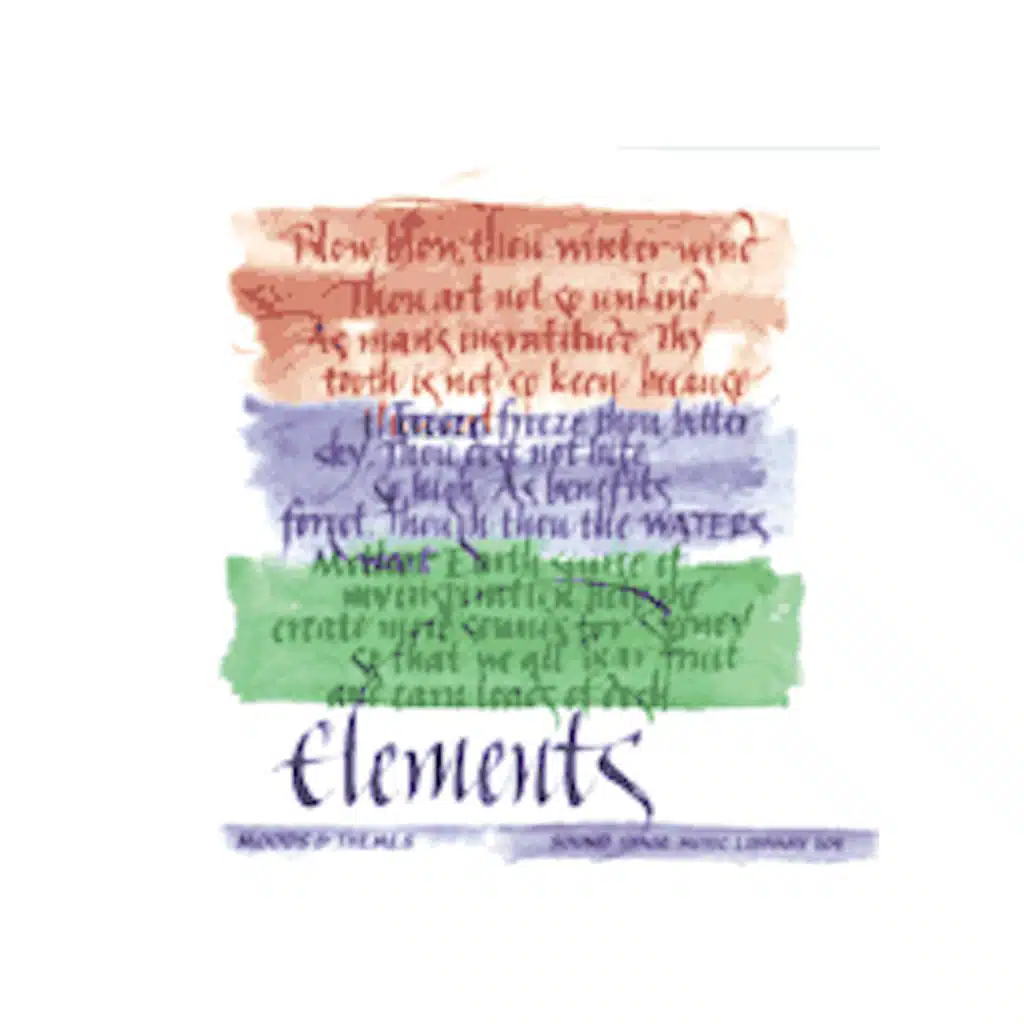 Blow blow, thou winter wind
Thou art not so unkind
As mans ingratitude Thy
tooth is not so keen because
Freeze! freeze thou bitter
sky, Thou dost not bite
So high As benefits
forgot. Though thou the WATERS
Mother Earth source of
create more sounds for money
So that we all
and earn loads of dosh
Elements
MOODS & THEMES
SOUND STAGE MUSIC LIBRARY